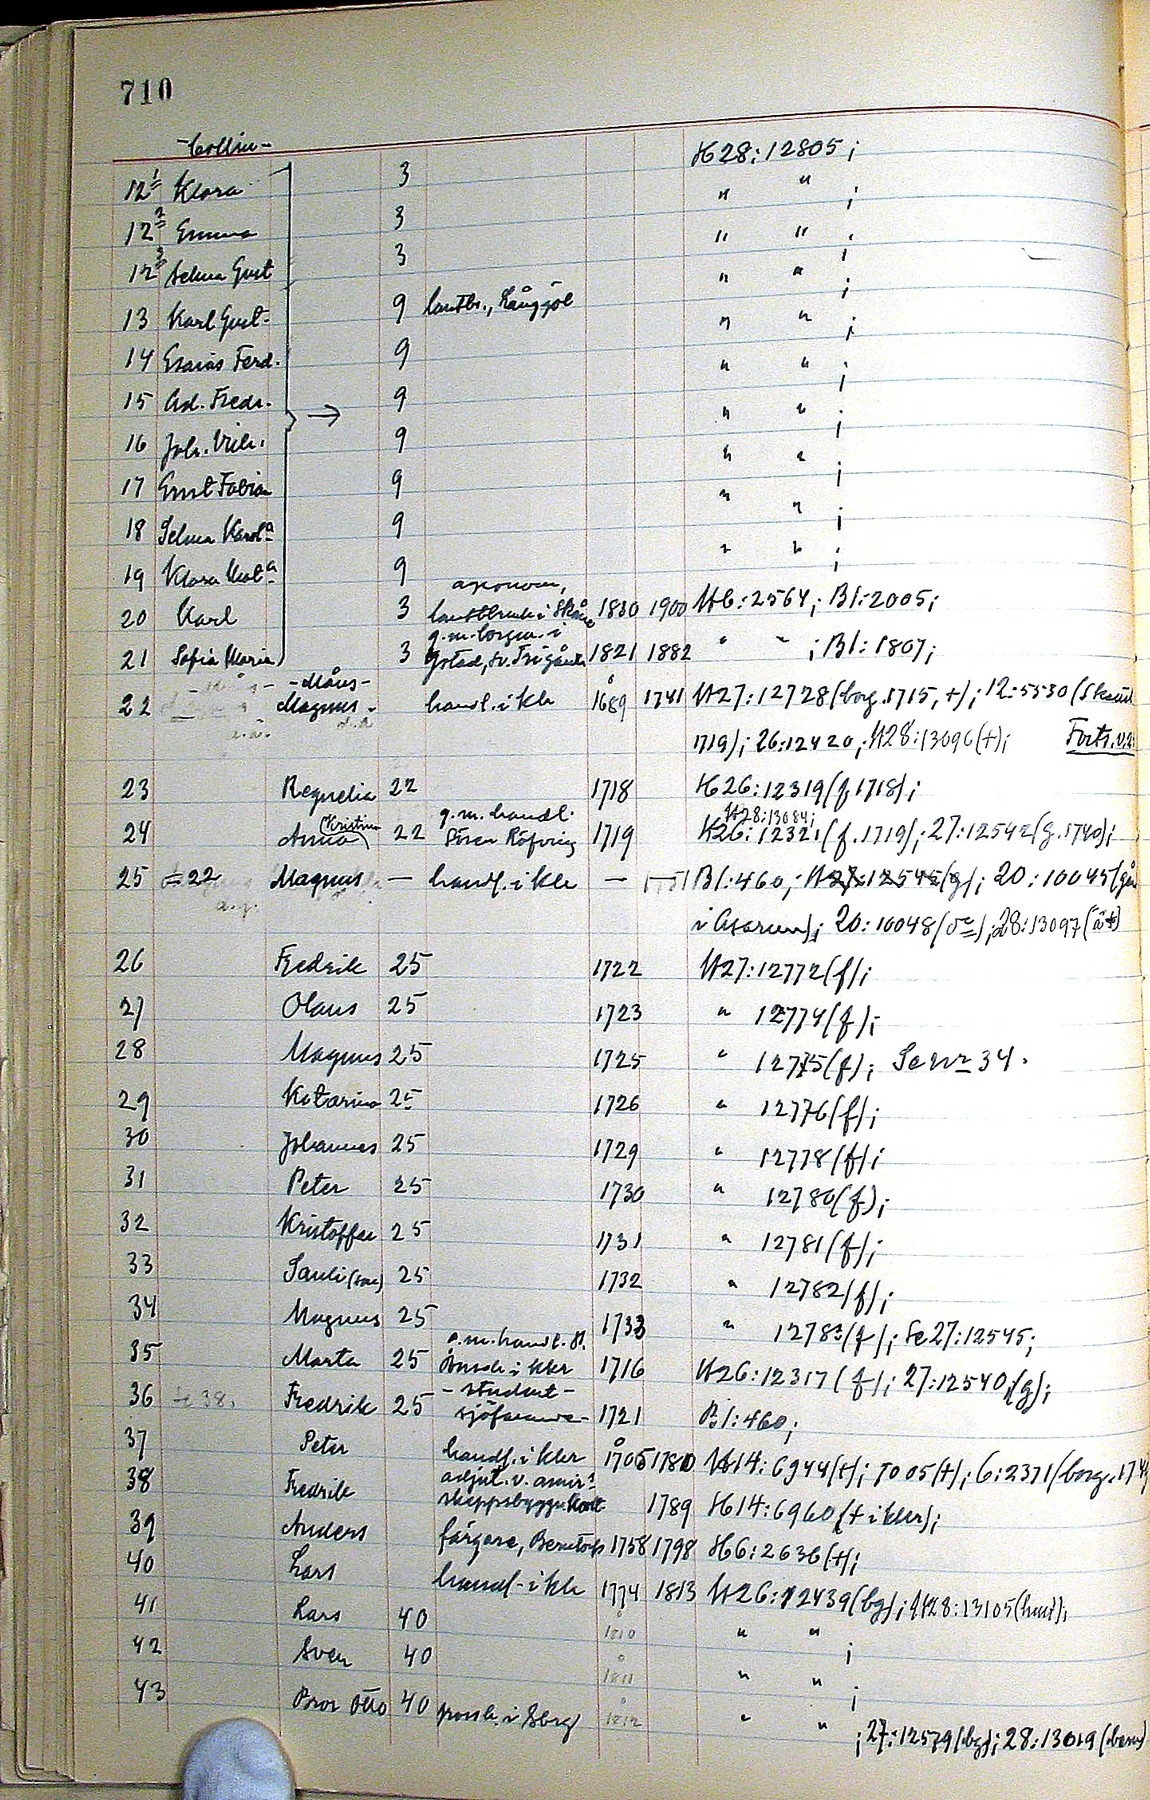 710
-Collin-
H28:12805;
12¹ Klara 3 " " ;
12² Emma 3 " " ;
12³ Selma Gust 3 " " ;
13 Karl Gust. 9 lantbr., Långgöl " " ;
14 Esaias Ferd. 9 " " ;
15 Ad. Fredr. 9 " " ;
16 Joh. Vilh. 9 " " ;
17 Ernst Fabian 9 " " ;
18 Selma Karolª 9 " " ;
19 Klara 9 " " ;
agronom,
20 Karl 3 lantbruk i Skåne 1830 1900 H6:2564; Bl:2005;
g.m. borgm. i
21 Sofia Maria 3 Ystad, 1821 1882 " " ; Bl:1807;
-Måns-
22 Magnus handl. i Khr 1689 1741 H27:12728 (borg. 1715, +); 12:5530 (
1719); 26:12420; H28:13096 (+); Forts.
23 Regnelia 22 1718 H26:12319 (f 1718);
g.m. handl. H28:13084;
24 Anna Kristina 22 Sören Röfving 1719 H26:12321 (f. 1719); 27:12542 (g. 1740);
25 =22 Magnus — handl. i Khr — 1751 Bl:460; H27:12545 (g); 20:10045 (
i Asarum); 20:10048 ( ); 28:13097 (
26 Fredrik 25 1722 H27:12772 (f);
27 Olaus 25 1723 " 12774 (f);
28 Magnus 25 1725 " 12775 (f); Se Nr 34.
29 Katarina 25 1726 " 12776 (f);
30 Johannes 25 1729 " 12778 (f);
31 Peter 25 1730 " 12780 (f);
32 Kristoffer 25 1731 " 12781 (f);
33 25 1732 " 12782 (f);
34 Magnus 25 1733 " 12783 (f); Se 27:12545;
g.m. handl. H.
35 Marta 25 i Khr 1716 H26:12317 (f); 27:12540 (g);
-student-
36 Se 38. Fredrik 25 sjöfarande- 1721 Bl:460;
37 Peter handl. i Khr 1705 1780 H14:6944 (+); 7005 (+); 6:2371 (borg. 174
adjut. v. amir.s
38 Fredrik skeppsbygg. 1789 H14:6960 (+ i Khr);
39 Anders färgare, 1758 1798 H6:2636 (+);
40 Lars handl. i Khr 1774 1813 H26:12439 (bg); H28:13105 ( );
41 Lars 40 1810 " " ;
42 Sven 40 1811 " " ;
43 Bror Otto 40 1812 " " ; 27:12579 (bg); 28:13019 (